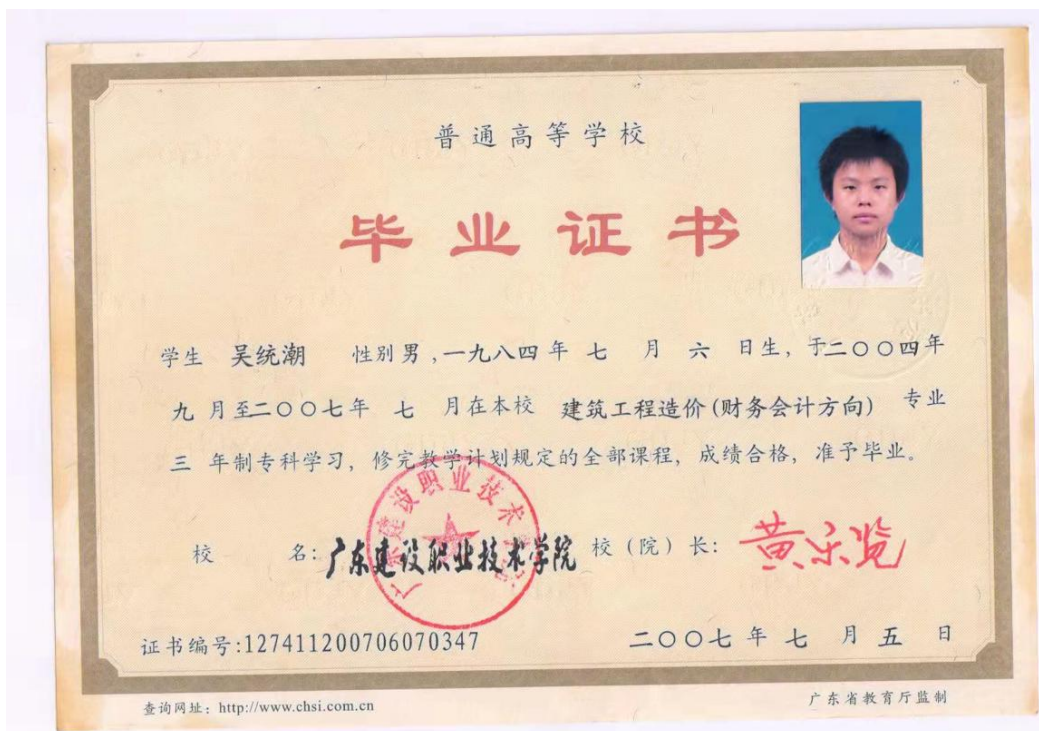 普通高等学校
毕业证书
学生 吴统潮 性别男,一九八四年 七 月 六 日生，于二〇〇四年
九 月至二〇〇七年 七 月在本校 建筑工程造价(财务会计方向) 专业
三 年制专科学习，修完教学计划规定的全部课程，成绩合格，准予毕业。
广东建设职业技术学院
校 名:广东建设职业技术学院 校（院）长:
证书编号:127411200706070347 二〇〇七 年 七 月 五 日
查询网址：http://www.chsi.com.cn 广东省教育厅监制